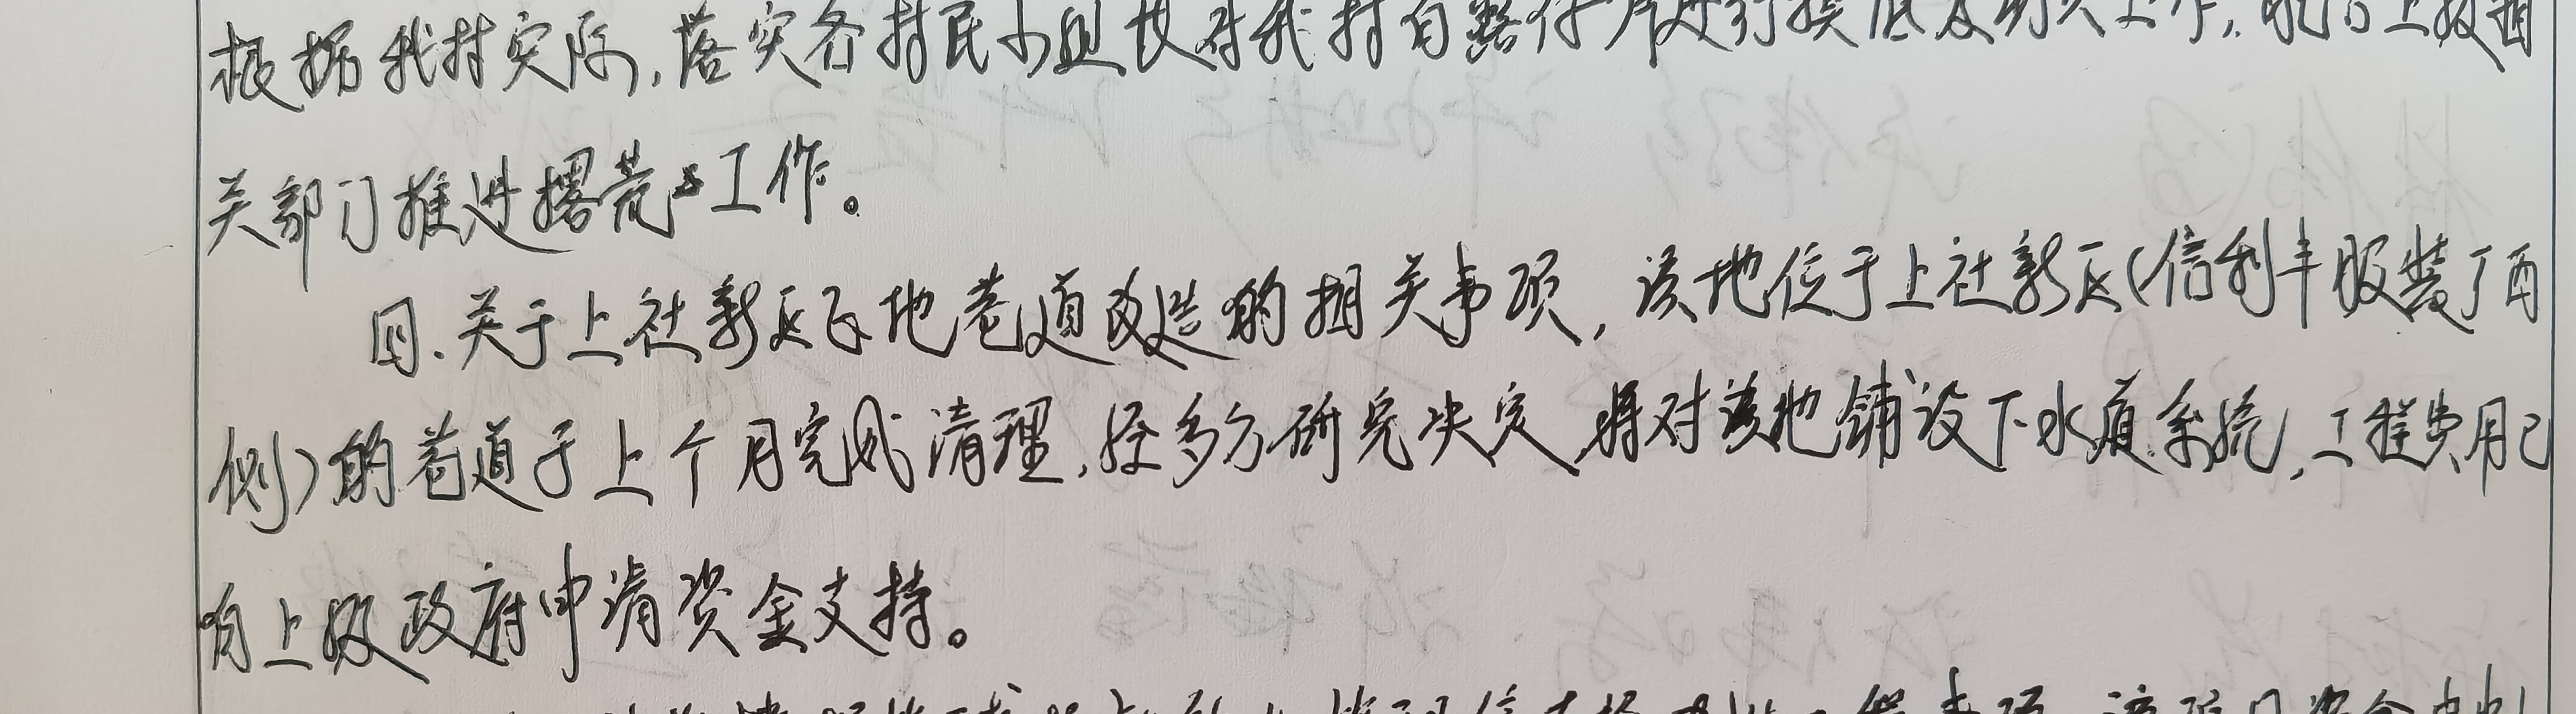 根据我村实际,落实各村民小组长对我村自整仔户进行摸底及劝人工作,配合上级相
关部门推进撂荒工作。
四.关于上社新区民地巷道改造的相关事项,该地位于上社新区(信利丰服装厂西
侧)的巷道于上个月完成清理,经多方研究决定将对该地铺设下水道系统,工程费用已
向上级政府申请资金支持。